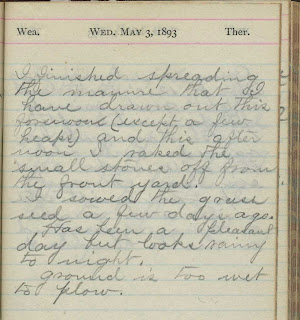 Wea. WED. MAY 3, 1893 Ther.
I finished spreading
the manure that I
have drawn out this
forenoon (except a few
heaps) and this after
noon I raked the
small stones off from
the front yard.
I sowed the grass
seed a few days ago.
Has been a pleasant
day but looks rainy
to night.
Ground is too wet
to plow.